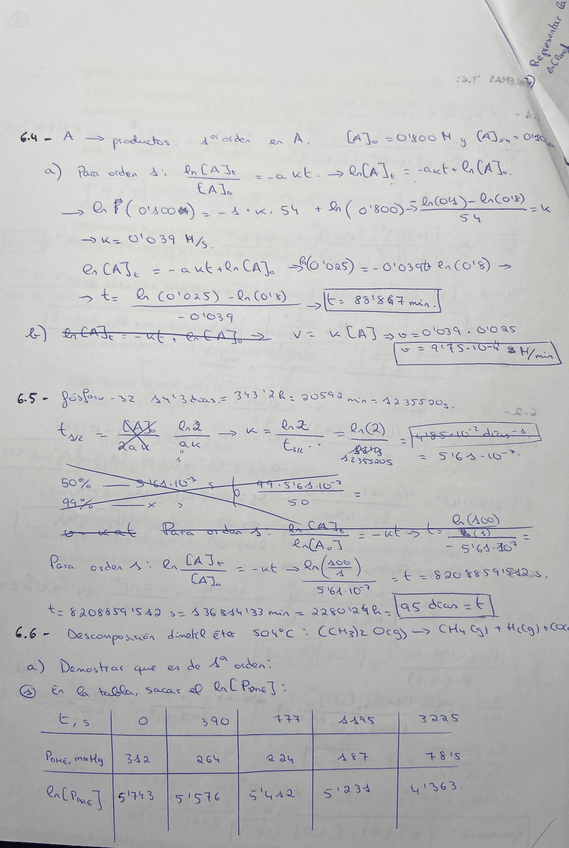 Representar
6.4 - A → productos. 1er orden en A. [A]₀ = 0'800 M y [A]₅₄ = 0'1
a) Para orden 1: ln[A]t / [A]₀ = -akt. → ln[A]t = -akt + ln[A]₀.
→ ln (0'100) = -1·k·54 + ln(0'800) → -ln(0'1) - ln(0'8) / 54 = k
→ k = 0'039 M/s.
ln[A]t = -akt + ln[A]₀ → ln(0'025) = -0'039t ln(0'8) →
→ t = ln(0'025) - ln(0'8) / -0'039 → t = 83'867 min.
b) ln[A]t = -kt + ln[A]₀ → v = k[A] → v = 0'039 · 0'025
v = 9'75·10⁻⁴ M/min
6.5 - fósforo-32 14'3 días = 343'2h = 20592 min = 1235520s.
t₁/₂ = [A]₀ / 2ak ln2 / ak → k = ln2 / t₁/₂ = ln(2) / 1235520s = 4'85·10⁻² días⁻¹
= 5'61·10⁻⁷.
50% — 5'61·10⁻⁷ s 99·5'61·10⁻⁷ / 50 =
99% — x s
Para orden 1: ln[A]t / ln[A₀] = -kt → t = ln(100) / - 5'61·10⁷ =
Para orden 1: ln [A]t / [A]₀ = -kt → ln(100/1) / 5'61·10⁻⁷ = t = 8208859'512 s.
t = 8208859'512 s = 136814'33 min = 2280'24h = 95 días = t
6.6 - Descomposición dimetil éter 504°C: (CH3)2O(g) → CH4(g) + H2(g) + CO(
a) Demostrar que es de 1er orden:
① En la tabla, sacar el ln[PDME]:
t, s 0 390 777 1195 3225
PDME, mmHg 312 264 224 187 78'5
ln[PDME] 5'743 5'576 5'412 5'231 4'363